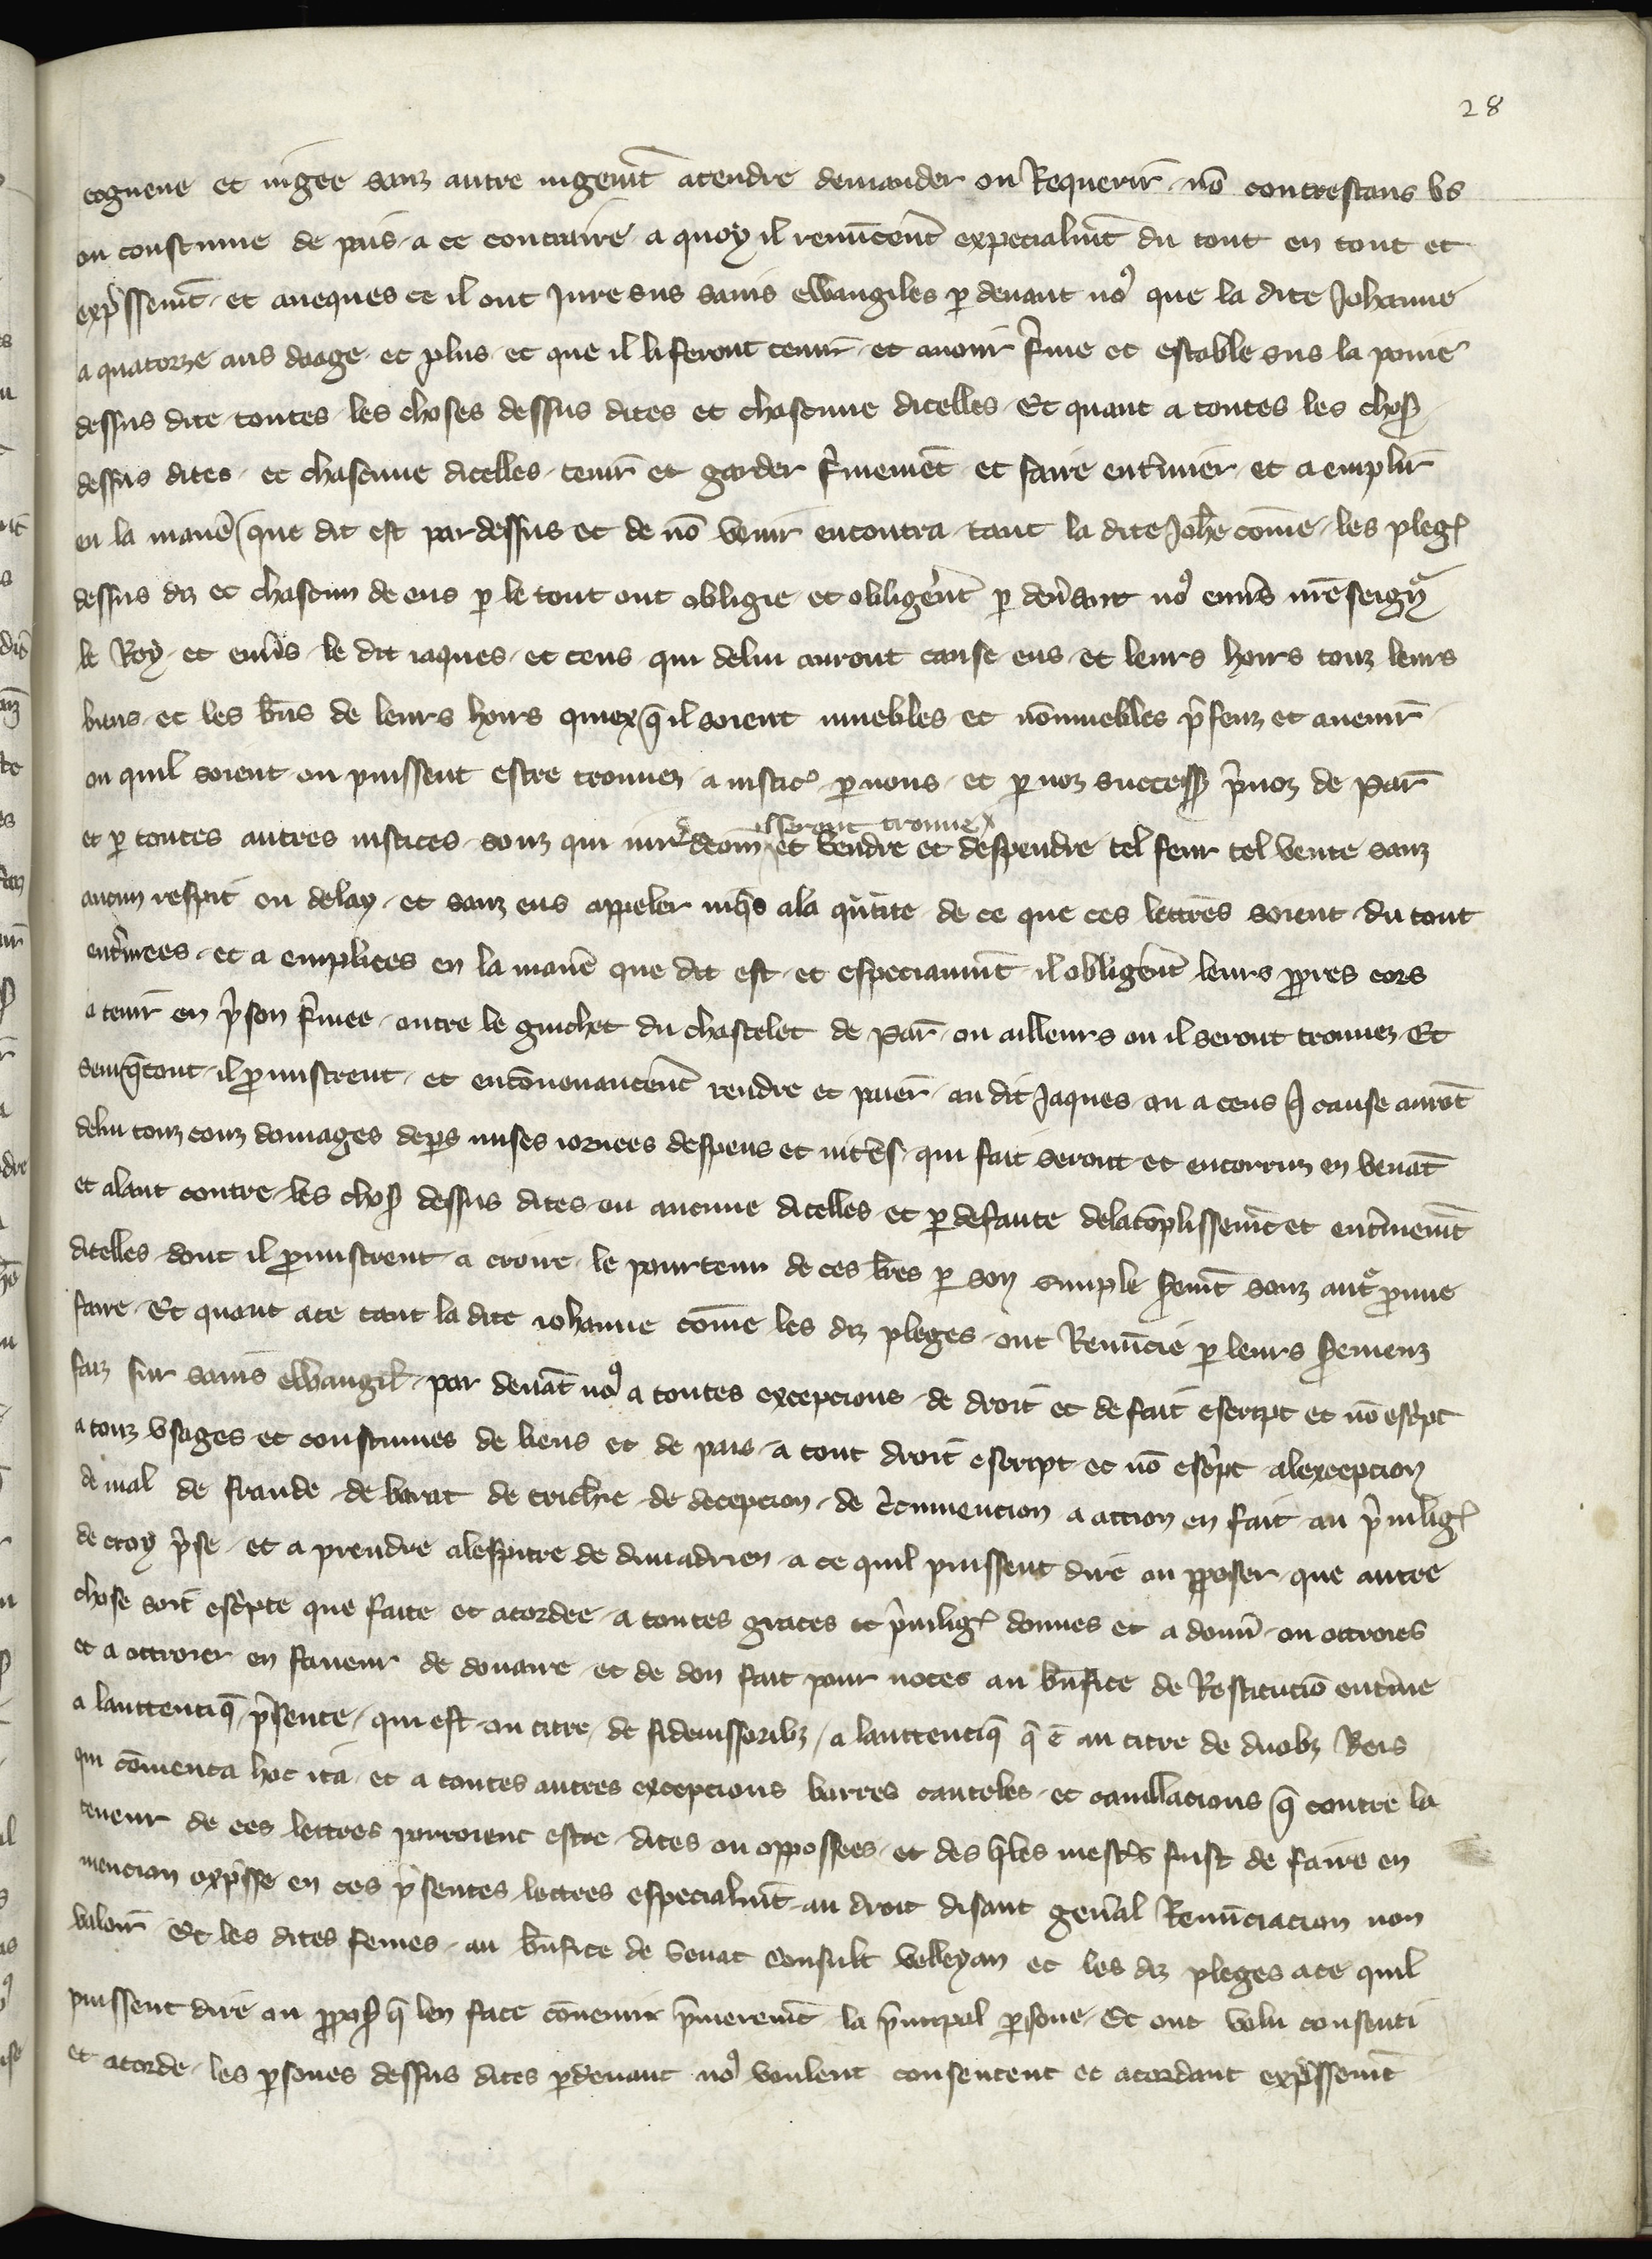 28
cogneue et iugee sanz autre iugem̄t atendre demander ou Requerir nō contrestans vs
ou coustume de pais a ce contraire a quoy il renūcent expecialm̄t du tout en tout et
exp̄ssem̄t et aueques ce il ont Jure sus sains ewangiles p deuant no9 que la dite Johanne
a quatorze ans daage et plus et que il li feront tenir et auoir f̄me et estable sus la poine
dessus dite toutes les choses dessus dites et chascune dicelles Et quant a toutes les chos
dessus dites et chascune dicelles tenir et garder f̄mement et faire ent̄rinier et a emplir
en la manē que dit est par dessus et de nō venir encontra tant la dite Joh̄e cōme les pleg
dessus diz et chascun de eus p le tout ont obligie et obligēnt p deūant no9 enūs mēseigñ
le Roy et enūs le dit iaques et ceus qui deluy auront cause eus et leurs hoirs touz leurs
biens et les b̄ns de leurs hoirs quiex q̄ il soient muebles et nōmuebles p̄senz et auenir
ou quil soient ou puissent estre trouuez a iustic p nous et p noz success p̄uoz de Par̄
et p toutes autres iustices souz qui iur̄d̄com il seront trouuez et vendre et despendre tel feur tel vente sanz
aucun respit ou delay et sanz eus appeler iuq̄s ala q̄ntite de ce que ces lettres soient du tout
ent̄inees et a emplices en la manē que dit est et especiaum̄t il obligēnt leurs ppres cors
a tenir en p̄son f̄mee outre le guichet du chastelet de Par̄ ou ailleurs ou il seront trouuez Et
seurq̄tout il pmistrent et encōuenancēnt rendre et paier au dit Jaques ou a ceus q̄ cause aurōt
deluy touz couz domages depers mises iornees despens et int̄es qui fait seront et encorruz en venāt
et alant contre les chos dessus dites ou aucune dicelles et p defaute delacōplissem̄t et ent̄inem̄t
dicelles dont il pmistrent a croire le pourteur de ces l̄res p son simple s̄em̄t sanz aut̄ p̄uue
faire Et quant ace tant la dite iohanne cōme les diz pleges ont Renūcie p leurs s̄emenz
faiz sur sains ewangil par deuāt no9 a toutes excepcions de droit et de fait escript et nō esc̄pt
a touz vsages et coustumes de liens et de pais a tout droit escript et nō esc̄pt alexcepcion
de mal de fraude de barat de tricherie de decepcion de c̄cumuencion a action en fait au p̄uileg
de croy p̄se et a prendre alespitre de diuadrien a ce quil puissent dire ou pposer que autre
chose soit esc̄pte que faite et acordee a toutes graces et p̄uileg donnes et a donn̄ ou ottroies
et a ottroier en faueur de douaire et de don fait pour noces au b̄nfice de Restituciō ent̄ine
a lauttentiq̄ p̄sente qui est ou titre de fideiussoribz a lauttentiq̄ q̄ ē au titre de duobz Reis
qui cōmenca hoc ita et a toutes autres excepcions barres cauteles et cauillacions q̄ contre la
teneur de ces lettres porroient estre dites ou oppossees et des q̄les mest̄s fust de faire en
mencion exp̄sse en ces p̄sentes lettres especialm̄t au droit disant gen̄al Renūciacion non
valoir Et les dites femes au b̄nfice de Senat consult velleyan et les diz pleges ace quil
puissent dire ou ppos q̄ len face cōuenir p̄mierem̄t la p̄ncipal psone Et ont volu consenti
et acorde les psones dessus dites pdeuant no9 voulent consentent et acordant exp̄ssem̄t